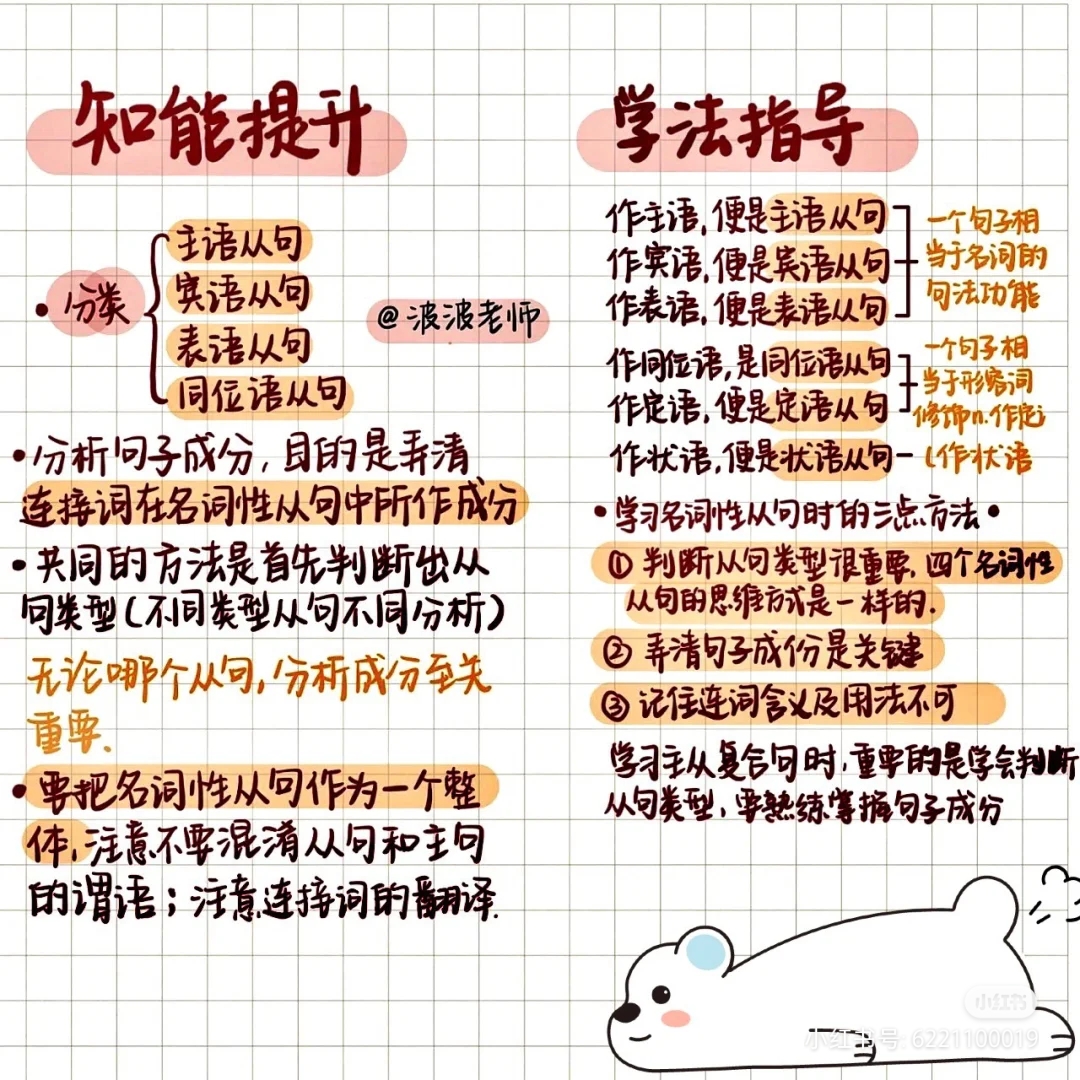 知能提升
分类
主语从句
宾语从句
表语从句
同位语从句
@波波老师
•分析句子成分,目的是弄清
连接词在名词性从句中所作成分
•共同的方法是首先判断出从
句类型(不同类型从句不同分析)
无论哪个从句,分析成分至关
重要.
•要把名词性从句作为一个整
体,注意不要混淆从句和主句
的谓语;注意连接词的翻译.
学法指导
作主语,便是主语从句
作宾语,便是宾语从句
作表语,便是表语从句
一个句子相
当于名词的
句法功能
作同位语,是同位语从句
作定语,便是定语从句
一个句子相
当于形容词
修饰n.作定
作状语,便是状语从句
(作状语
•学习名词性从句时的三点方法•
①判断从句类型很重要,四个名词性
从句的思维方式是一样的.
②弄清句子成份是关键
③记住连词含义及用法不可
学习主从复合句时,重要的是学会判断
从句类型,要熟练掌握句子成分
小红书
小红书号: 6221100019